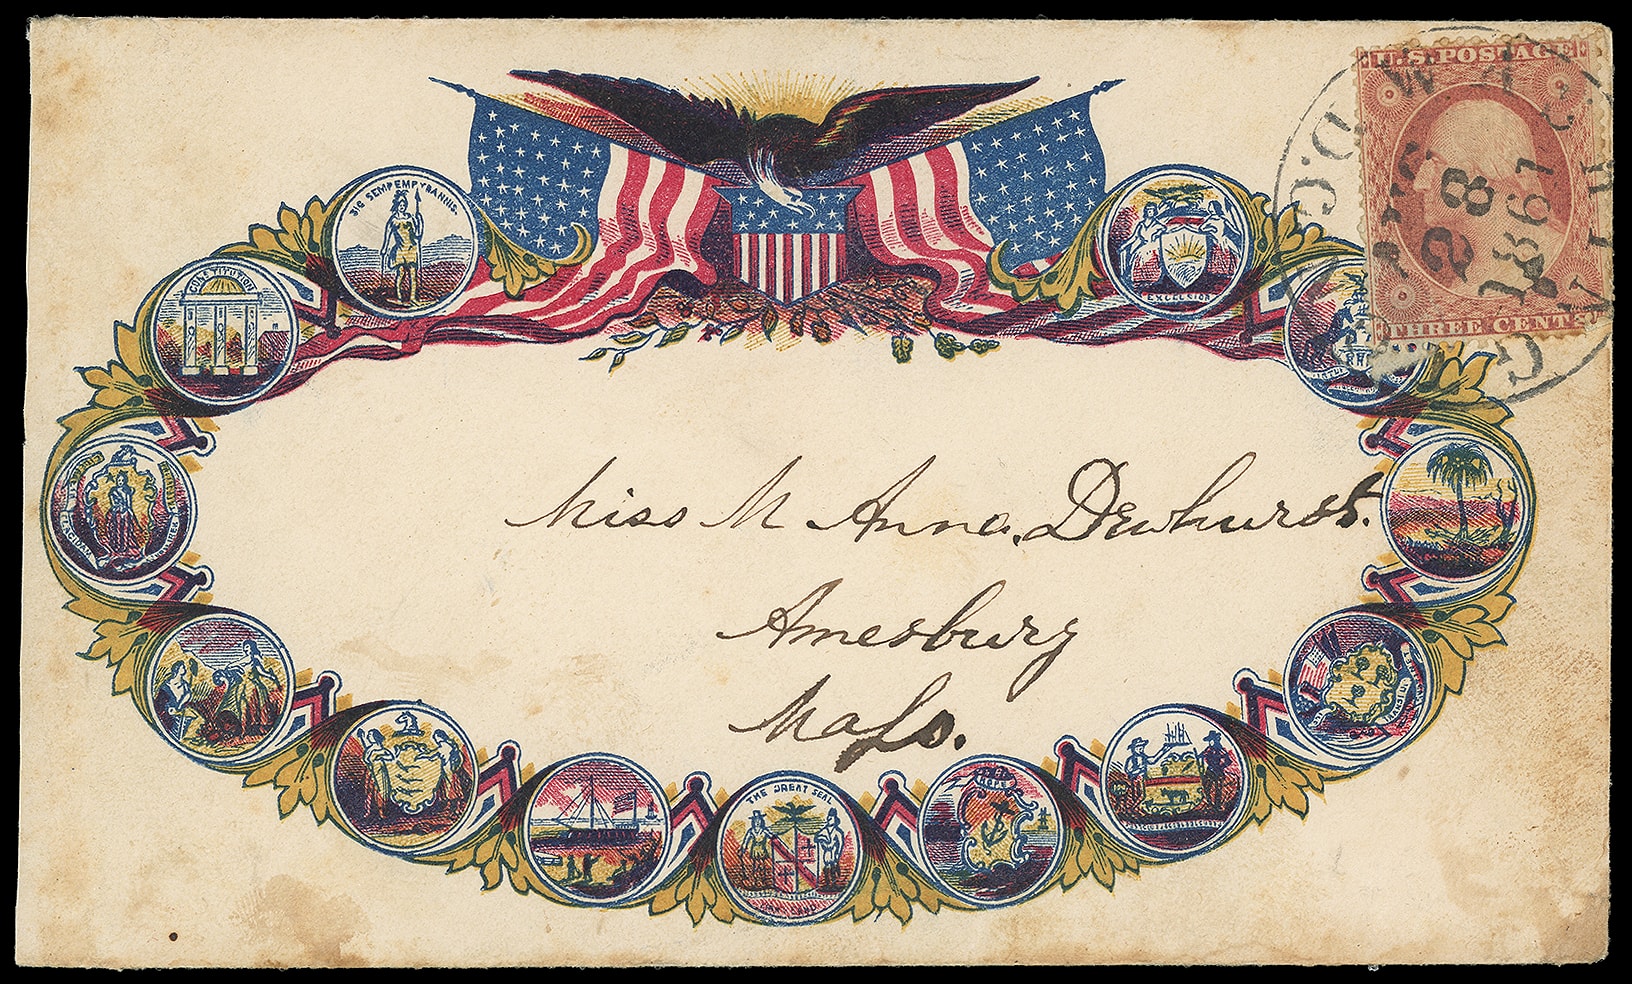 U.S. POSTAGE
THREE CENT
AUG
28
1861
D.C.
SIC SEMP EMPYRANNIS.
CONSTITUTION
EXCELSIOR
HOPE
THE GREAT SEAL
Miss M Anna. Dewhurst.
Amesbury
Mass.